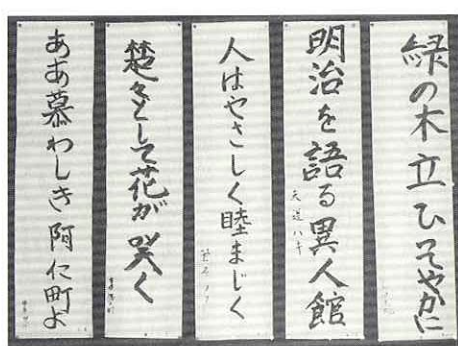 緑の木立ひそやかに
明治を語る異人館
人はやさしく睦まじく
楚々として花が咲く
ああ慕わしき阿仁町よ